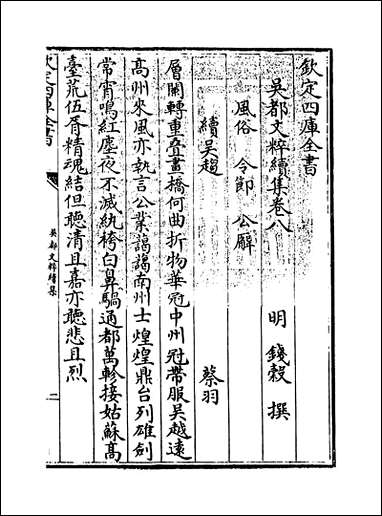 欽定四庫全書
吳都文粹續集卷八
明 錢穀 撰
風俗 令節 公廨
續吳趨 蔡羽
層闗轉重疊畫橋何曲折物華冠中州冠帶服吳越遠
髙州來風亦執言公業藹藹南州士煌煌鼎台列雄劍
常宵鳴紅塵夜不滅紈袴白鼻騧通都萬軫接姑蘇髙
臺荒伍胥精魂結但聽清且嘉亦聽悲且烈
欽定四庫全書
吳都文粹續集
二